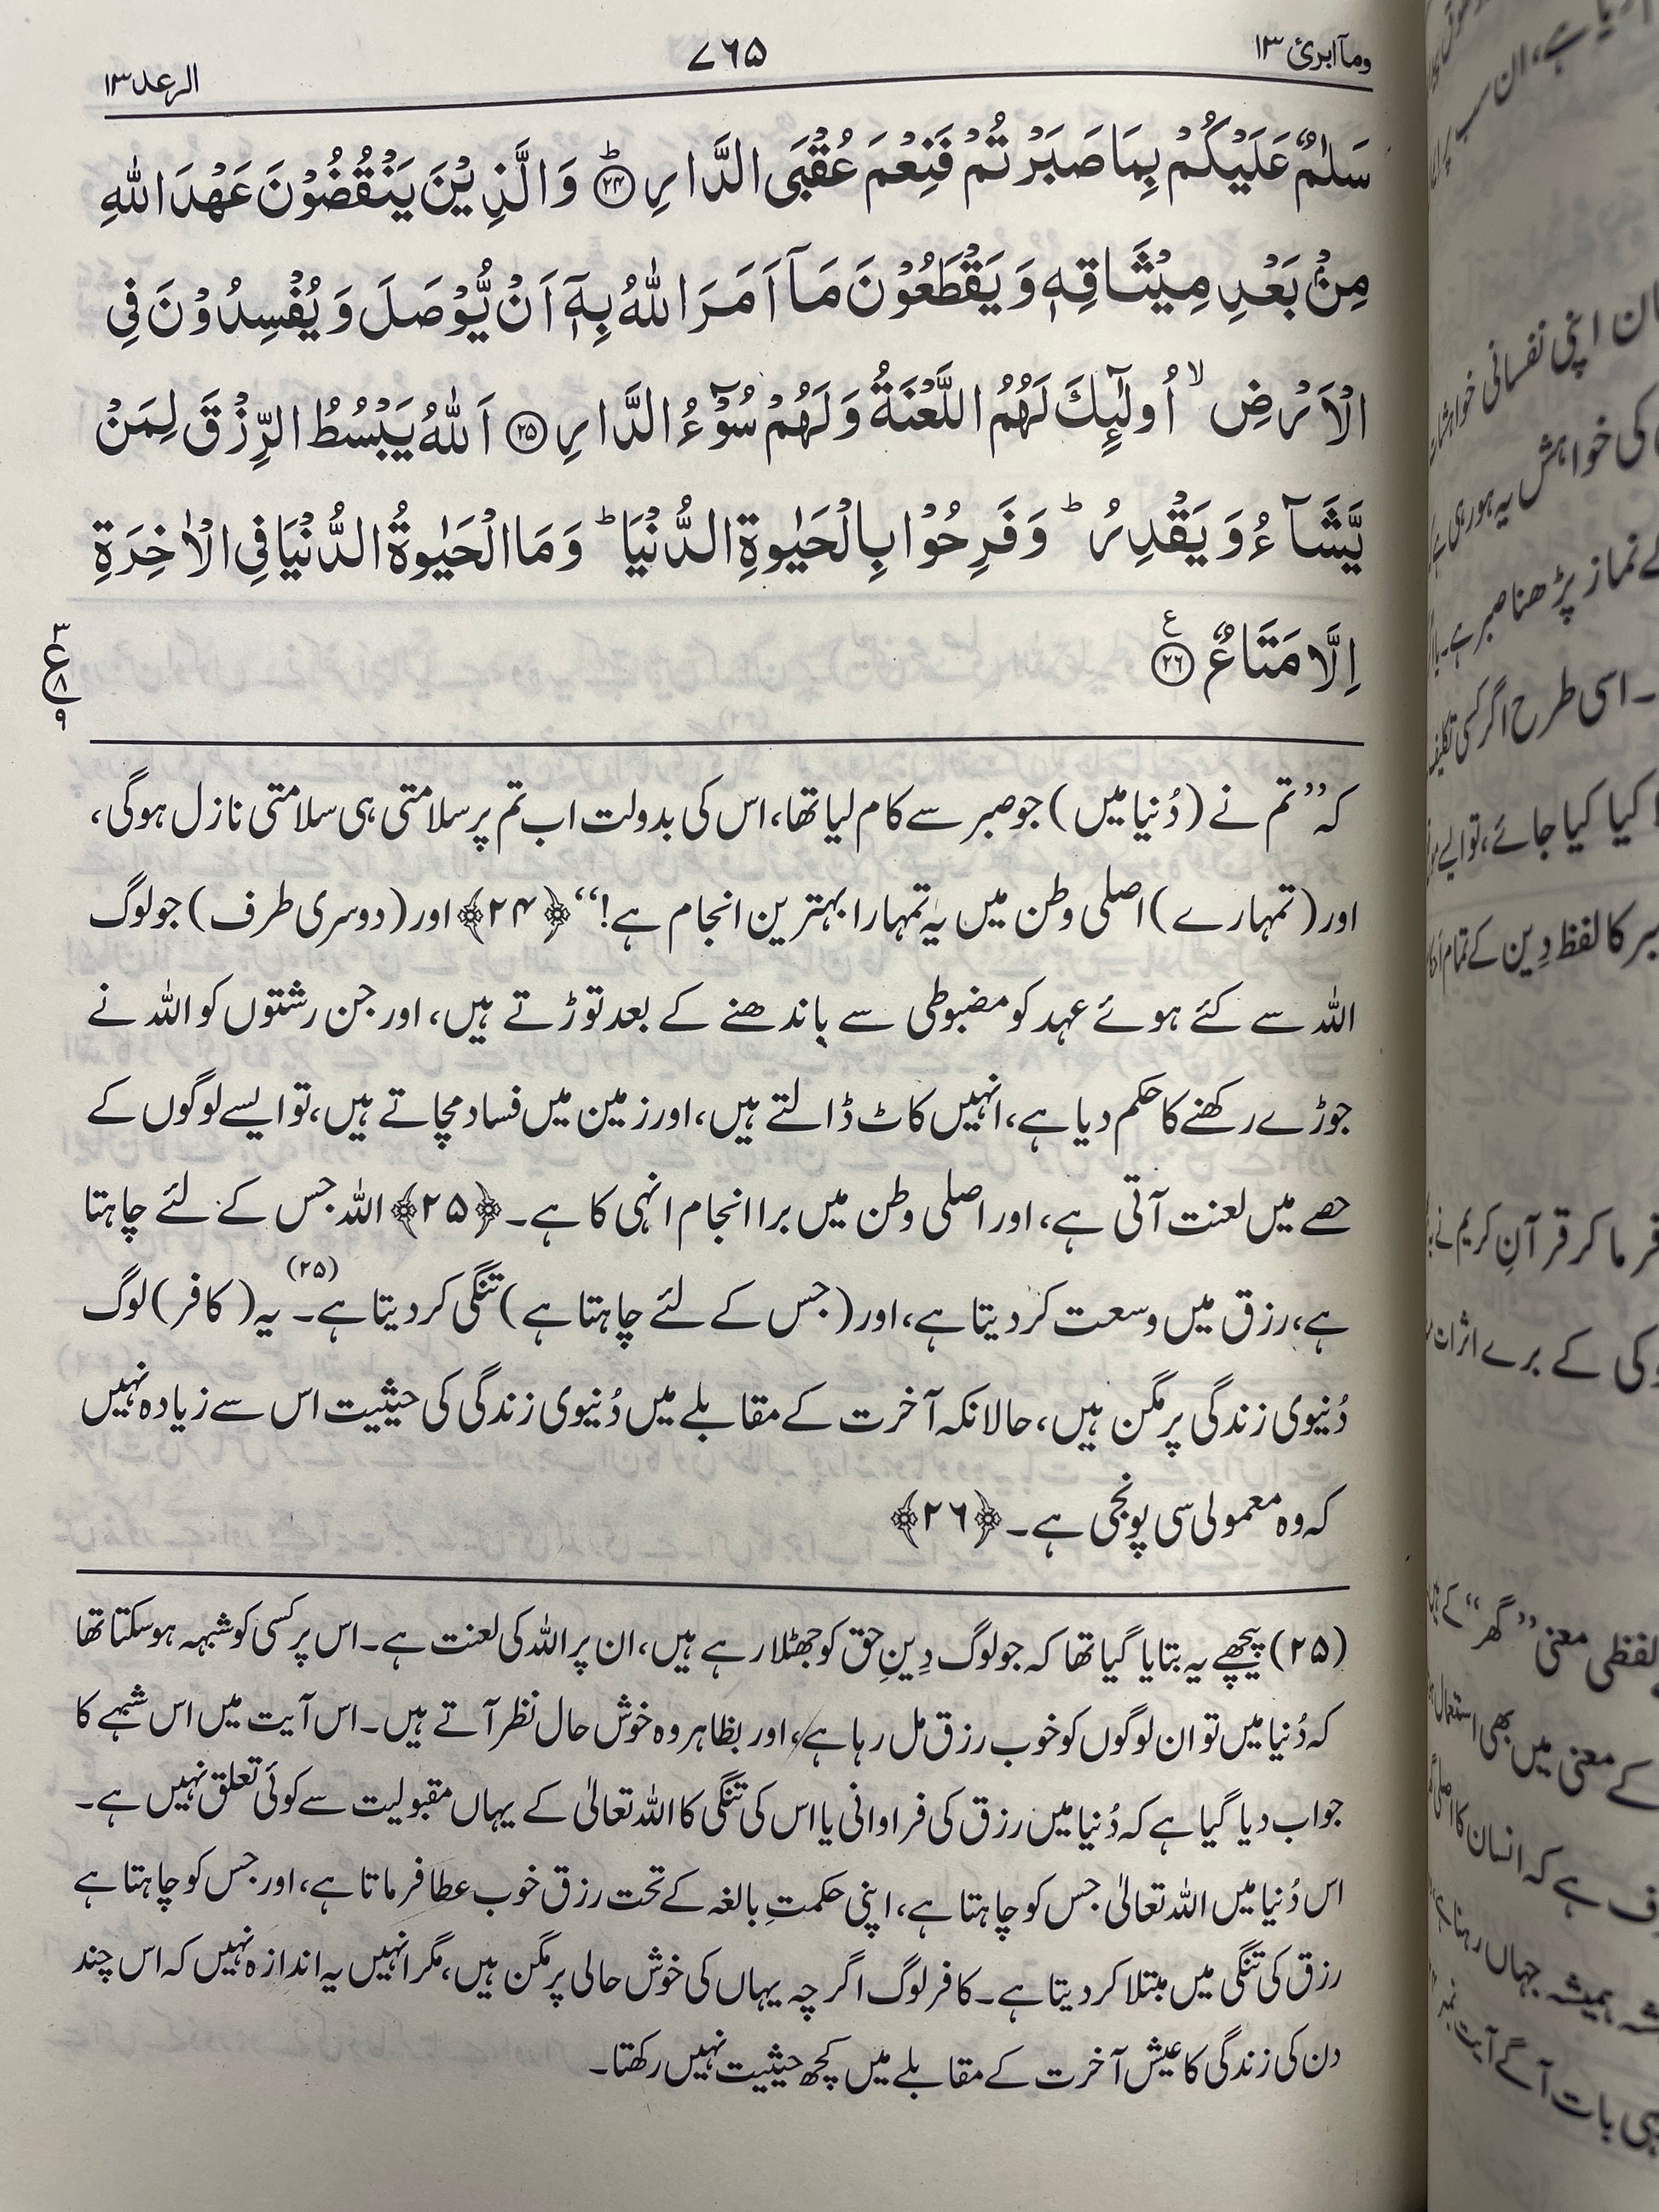 ومآ ابرئ ۱۳
۷۶۵
الرعد ۱۳
سَلٰمٌ عَلَيْكُمْ بِمَا صَبَرْتُمْ فَنِعْمَ عُقْبَى الدَّارِ ؕ﴿۲۴﴾ وَ الَّذِيْنَ يَنْقُضُوْنَ عَهْدَ اللّٰهِ
مِنْۢ بَعْدِ مِيْثَاقِهٖ وَ يَقْطَعُوْنَ مَاۤ اَمَرَ اللّٰهُ بِهٖۤ اَنْ يُّوْصَلَ وَ يُفْسِدُوْنَ فِي
الْاَرْضِ ۙ اُولٰٓئِكَ لَهُمُ اللَّعْنَةُ وَ لَهُمْ سُوْٓءُ الدَّارِ ﴿۲۵﴾ اَللّٰهُ يَبْسُطُ الرِّزْقَ لِمَنْ
يَّشَآءُ وَ يَقْدِرُ ؕ وَ فَرِحُوْا بِالْحَيٰوةِ الدُّنْيَا ؕ وَ مَا الْحَيٰوةُ الدُّنْيَا فِي الْاٰخِرَةِ
اِلَّا مَتَاعٌ ﴿۲۶﴾ ع
۳
ع
۸
۹
کہ ’’تم نے (دُنیا میں) جو صبر سے کام لیا تھا، اس کی بدولت اب تم پر سلامتی ہی سلامتی نازل ہوگی،
اور (تمہارے) اصلی وطن میں یہ تمہارا بہترین انجام ہے!‘‘ ﴿۲۴﴾ اور (دوسری طرف) جو لوگ
اللہ سے کئے ہوئے عہد کو مضبوطی سے باندھنے کے بعد توڑتے ہیں، اور جن رشتوں کو اللہ نے
جوڑے رکھنے کا حکم دیا ہے، اُنہیں کاٹ ڈالتے ہیں، اور زمین میں فساد مچاتے ہیں، تو ایسے لوگوں کے
حصے میں لعنت آتی ہے، اور اصلی وطن میں برا انجام انہی کا ہے۔ ﴿۲۵﴾ اللہ جس کے لئے چاہتا
ہے، رزق میں وسعت کر دیتا ہے، اور (جس کے لئے چاہتا ہے) تنگی کر دیتا ہے۔ (۲۵) یہ (کافر) لوگ
دُنیوی زندگی پر مگن ہیں، حالانکہ آخرت کے مقابلے میں دُنیوی زندگی کی حیثیت اس سے زیادہ نہیں
کہ وہ معمولی سی پونجی ہے۔ ﴿۲۶﴾
(۲۵) پیچھے یہ بتایا گیا تھا کہ جو لوگ دِینِ حق کو جھٹلا رہے ہیں، ان پر اللہ کی لعنت ہے۔ اس پر کسی کو شبہہ ہوسکتا تھا
کہ دُنیا میں تو ان لوگوں کو خوب رزق مل رہا ہے، اور بظاہر وہ خوش حال نظر آتے ہیں۔ اس آیت میں اس شبہے کا
جواب دیا گیا ہے کہ دُنیا میں رزق کی فراوانی یا اس کی تنگی کا اللہ تعالیٰ کے یہاں مقبولیت سے کوئی تعلق نہیں ہے۔
اس دُنیا میں اللہ تعالیٰ جس کو چاہتا ہے، اپنی حکمتِ بالغہ کے تحت رزق خوب عطا فرماتا ہے، اور جس کو چاہتا ہے
رزق کی تنگی میں مبتلا کر دیتا ہے۔ کافر لوگ اگر چہ یہاں کی خوش حالی پر مگن ہیں، مگر انہیں یہ اندازہ نہیں کہ اس چند
دن کی زندگی کا عیش آخرت کے مقابلے میں کچھ حیثیت نہیں رکھتا۔
ان اپنی نفسانی
کی خواہش یہ ہو رہی
نماز پڑھنا صبر ہے۔
۔ اسی طرح اگر کسی
کیا کیا جائے، تو ایسے
کا لفظ دِین کے تمام
فرما کر قرآنِ کریم نے
کے برے اثرات
لفظی معنی ’’گھر‘‘ کے
کے معنی میں بھی استعمال
ہے کہ انسان کا اصلی
ہمیشہ جہاں رہنا ہے
بات آگے آیت نمبر